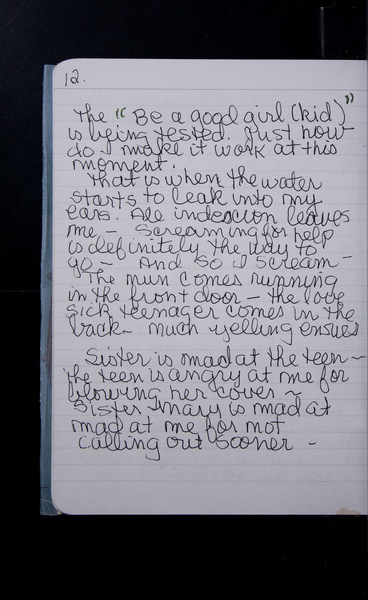 12.
The "Be a good girl (kid)"
is being tested. Just how
do I make it work at this
moment.
That is when the water
starts to leak into my
ears. All indecision leaves
me - Screaming for help
is definitely the way to
go - And so I scream -
The nun comes running
in the front door - the love
sick teenager comes in the
back - much yelling ensues
Sister is mad at the teen -
the teen is angry at me for
blowing her cover -
Sister Mary is mad at
mad at me for not
calling out sooner -